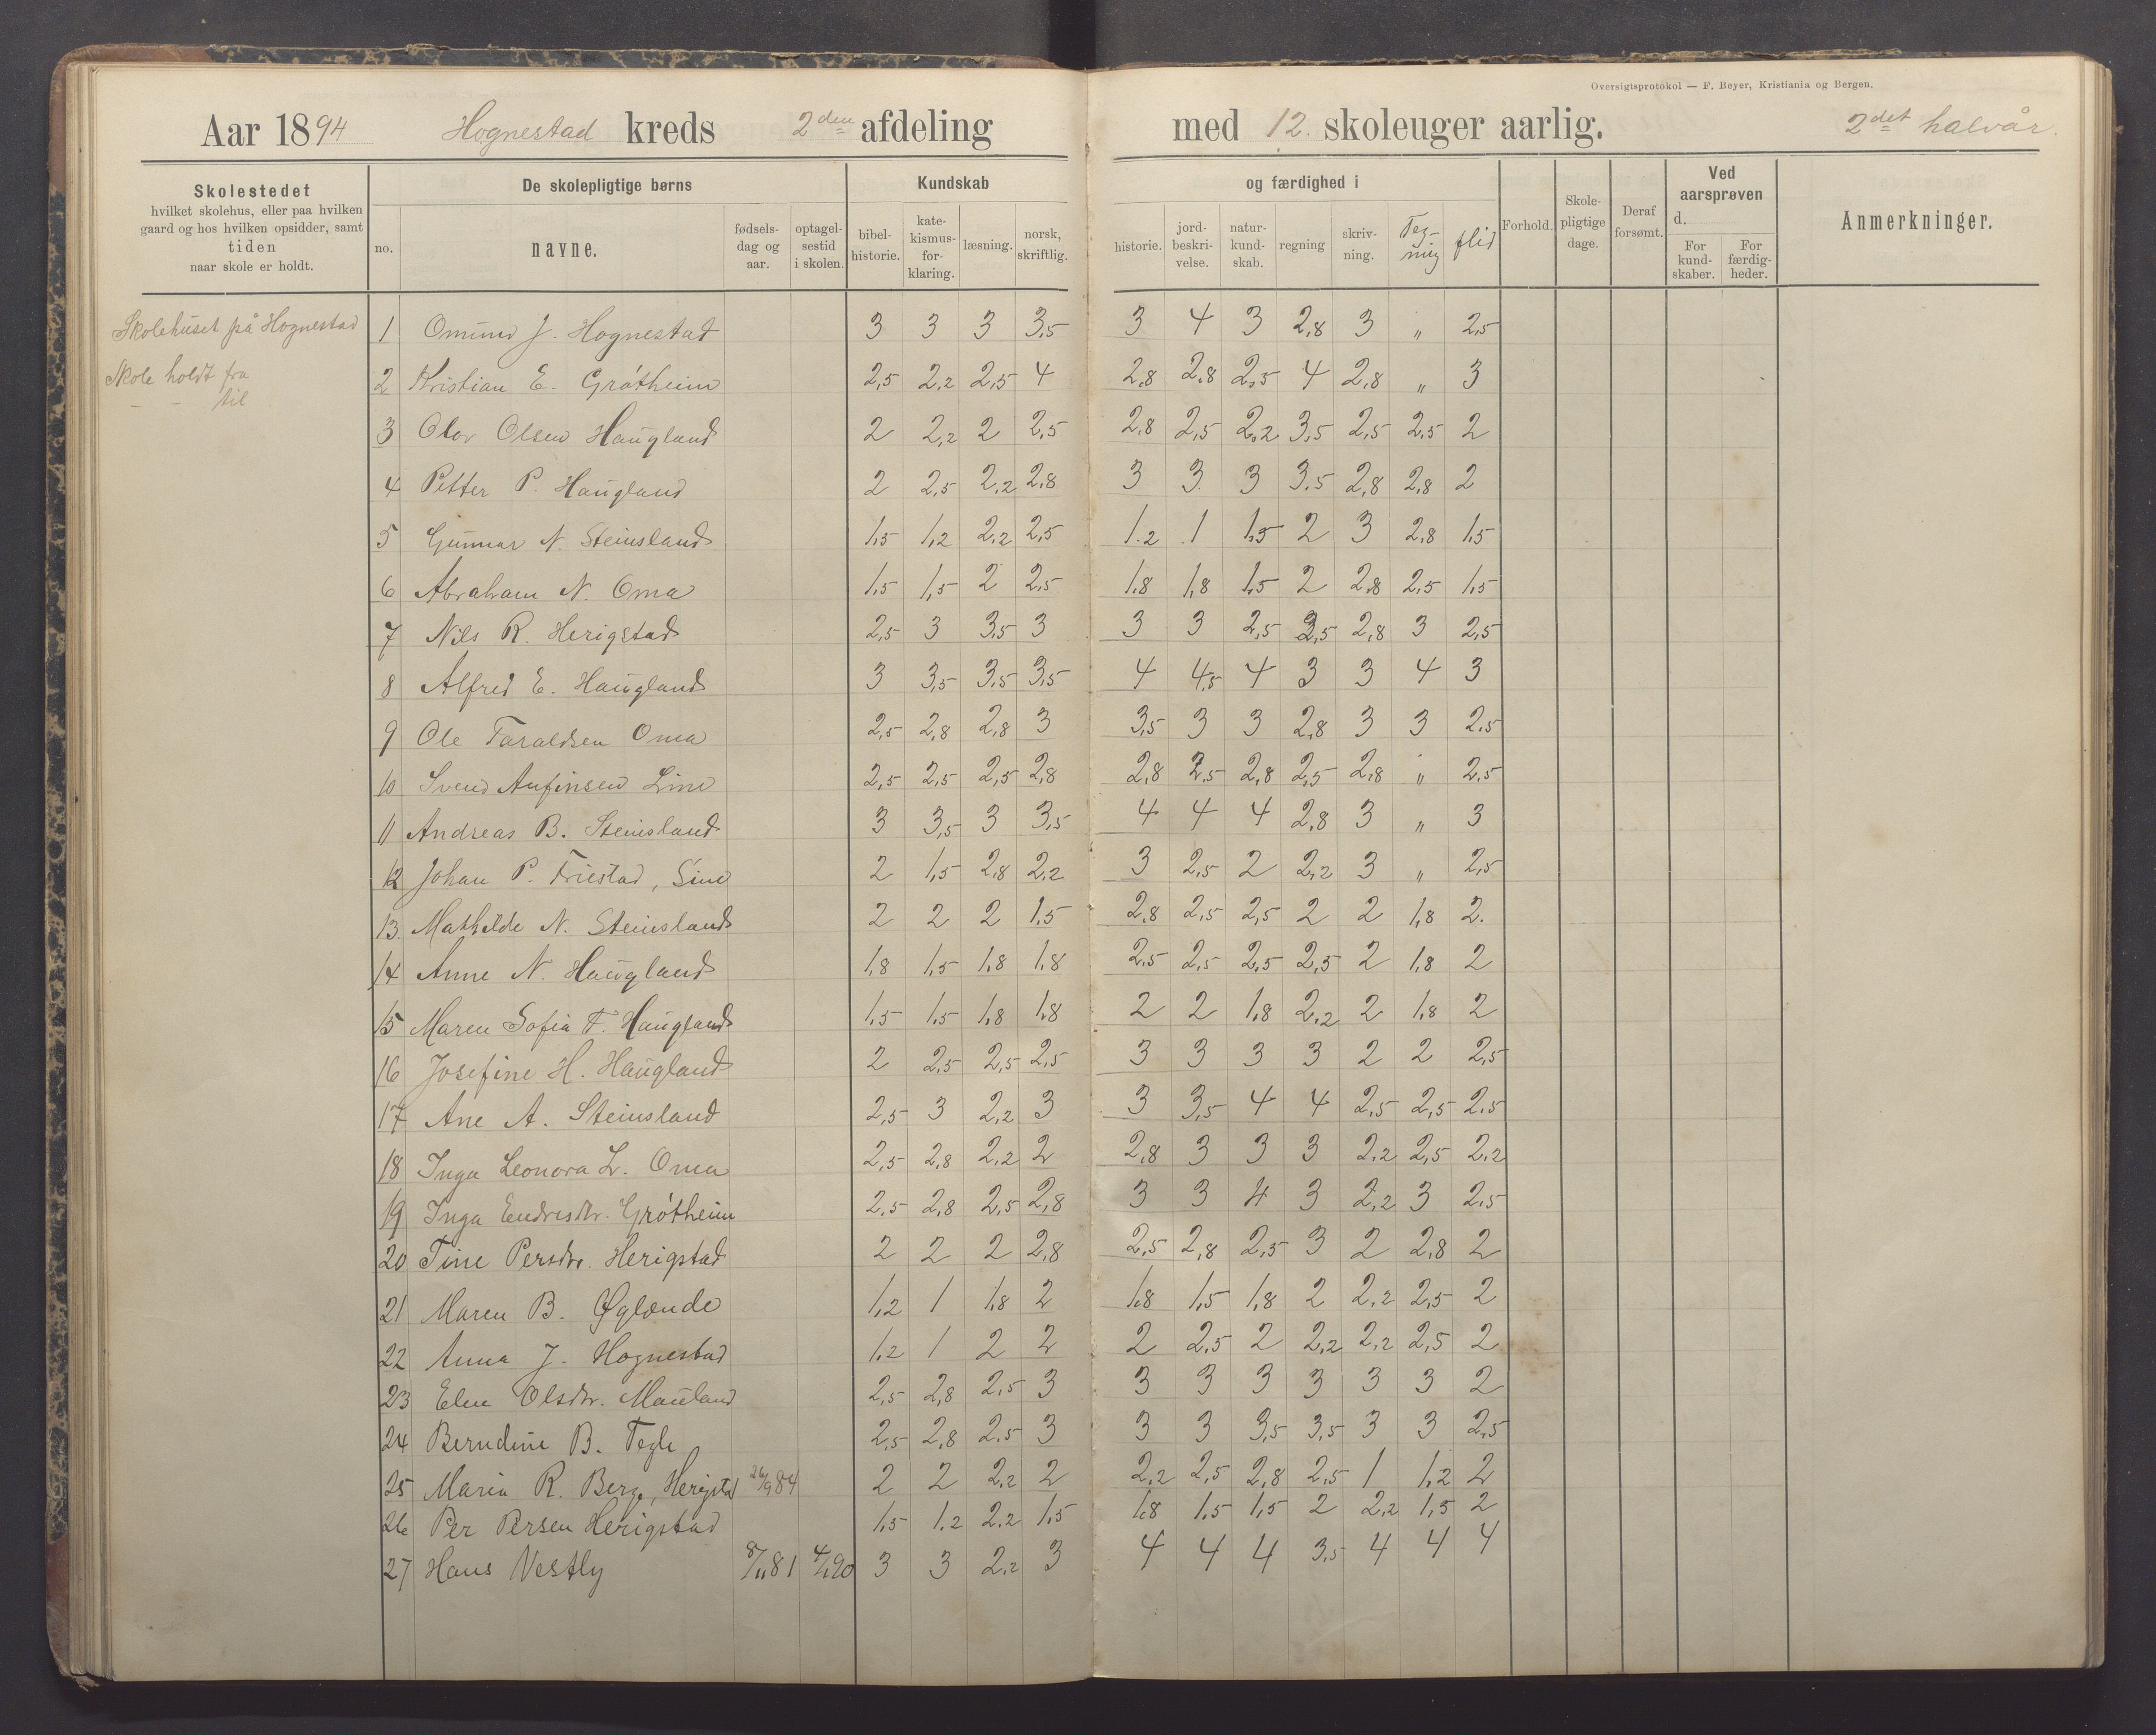 Oversigtsprotokol — F. Beyer, Kristiania og Bergen.
Aar 1894 Hognestad kreds 2den afdeling med 12. skoleuger aarlig. 2det halvår.
Skolestedet
hvilket skolehus, eller paa hvilken
gaard og hos hvilken opsidder, samt
tiden
naar skole er holdt.
De skolepligtige børns
no.
navne.
fødsels-
dag og
aar.
optagel-
sestid
i skolen.
Kundskab
bibel-
historie.
kate-
kismus-
for-
klaring.
læsning.
norsk,
skriftlig.
og færdighed i
historie.
jord-
beskri-
velse.
natur-
kund-
skab.
regning
skriv-
ning.
Teg-
ning
flid
Forhold.
Skole-
pligtige
dage.
Deraf
forsømt.
Ved
aarsprøven
d.
For
kund-
skaber.
For
færdig-
heder.
Anmerkninger.
Skolehuset på Hognestad
Skole holdt fra
— — til
1 Omund J. Hognestad 3 3 3 3,5 3 4 3 2,8 3 „ 2,5
2 Kristian E. Grótheim 2,5 2,2 2,5 4 2,8 2,8 2,5 4 2,8 „ 3
3 Olav Olsen Haugland 2 2,2 2 2,5 2,8 2,5 2,2 3,5 2,5 2,5 2
4 Petter P. Haugland 2 2,5 2,2 2,8 3 3 3 3,5 2,8 2,8 2
5 Gunnar N. Steinsland 1,5 1,2 2,2 2,5 1,2 1 1,5 2 3 2,8 1,5
6 Abraham N. Oma 1,5 1,5 2 2,5 1,8 1,8 1,5 2 2,8 2,5 1,5
7 Nils R. Herigstad 2,5 3 3,5 3 3 3 2,5 2,5 2,8 3 2,5
8 Alfred E. Haugland 3 3,5 3,5 3,5 4 4,5 4 3 3 4 3
9 Ole Taraldsen Oma 2,5 2,8 2,8 3 3,5 3 3 2,8 3 3 2,5
10 Svend Anfinsen Line 2,5 2,5 2,5 2,8 2,8 2,5 2,8 2,5 2,8 „ 2,5
11 Andreas B. Steinsland 3 3,5 3 3,5 4 4 4 2,8 3 „ 3
12 Johan P. Friestad, Line 2 1,5 2,8 2,2 3 2,5 2 2,2 3 „ 2,5
13. Mathilde N. Steinsland 2 2 2 1,5 2,8 2,5 2,5 2 2 1,8 2.
14 Anne N. Haugland 1,8 1,5 1,8 1,8 2,5 2,5 2,5 2,5 2 1,8 2
15 Maren Sofia T. Haugland 1,5 1,5 1,8 1,8 2 2 1,8 2,2 2 1,8 2
16 Josefine H. Haugland 2 2,5 2,5 2,5 3 3 3 3 2 2 2,5
17 Ane A. Steinsland 2,5 3 2,2 3 3 3,5 4 4 2,5 2,5 2,5
18 Inga Leonora L. Oma 2,5 2,8 2,2 2 2,8 3 3 3 2,2 2,5 2,2
19 Inga Endresdtr. Grótheim 2,5 2,8 2,5 2,8 3 3 4 3 2,2 3 2,5
20 Tine Persdtr. Herigstad 2 2 2 2,8 2,5 2,8 2,5 3 2 2,8 2
21 Maren B. Øglænde 1,2 1 1,8 2 1,8 1,5 1,8 2 2,2 2,5 2
22 Anna J. Hognestad 1,2 1 2 2 2 2,5 2 2,2 2,2 2,5 2
23 Elen Olsdtr. Mauland 2,5 2,8 2,5 3 3 3 3 3 3 3 2
24 Berndine B. Tegle 2,5 2,8 2,5 3 3 3 3,5 3,5 3 3 2,5
25 Maria R. Berge, Herigstad 26/9 84 2 2 2,2 2 2,2 2,5 2,8 2,5 1 1,2 2
26 Per Persen Herigstad 1,5 1,2 2,2 1,5 1,8 1,5 1,5 2 2,2 1,5 2
27 Hans Vestly 8/11 81 4/1 90 3 3 2,2 3 4 4 4 3,5 4 4 4